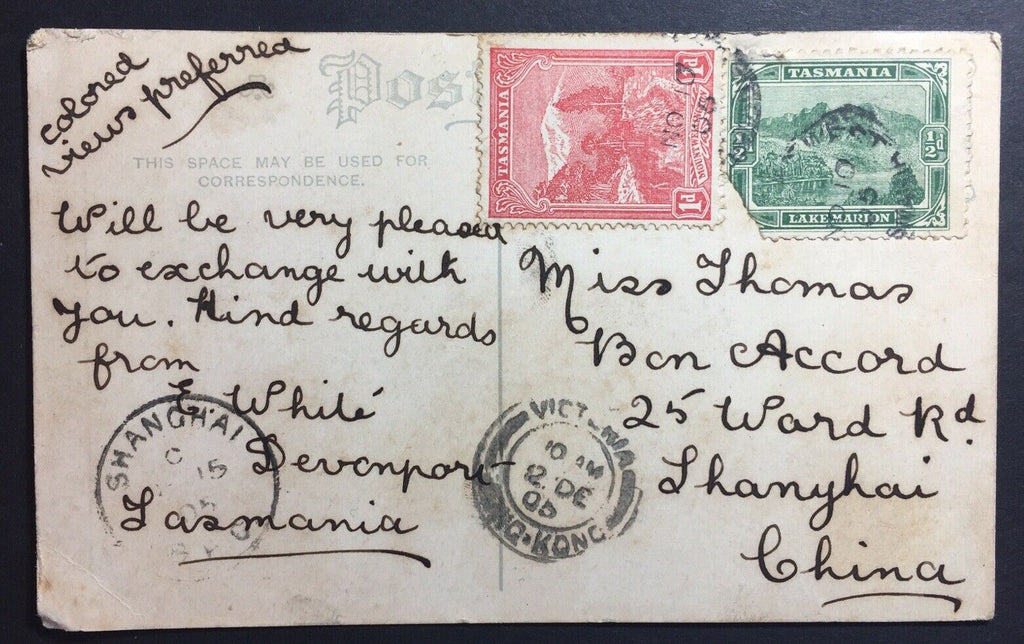 colored
views preferred
Post
THIS SPACE MAY BE USED FOR
CORRESPONDENCE.
Will be very pleased
to exchange with
you. Kind regards
from
E. White
Devonport
Tasmania
TASMANIA
P1
P1
TASMANIA
½d
½d
LAKE MARION
Miss Thomas
Bon Accord
25 Ward Rd
Shanghai
China
SHANGHAI
15
VICTORIA
10 AM
DE
05
HONG-KONG